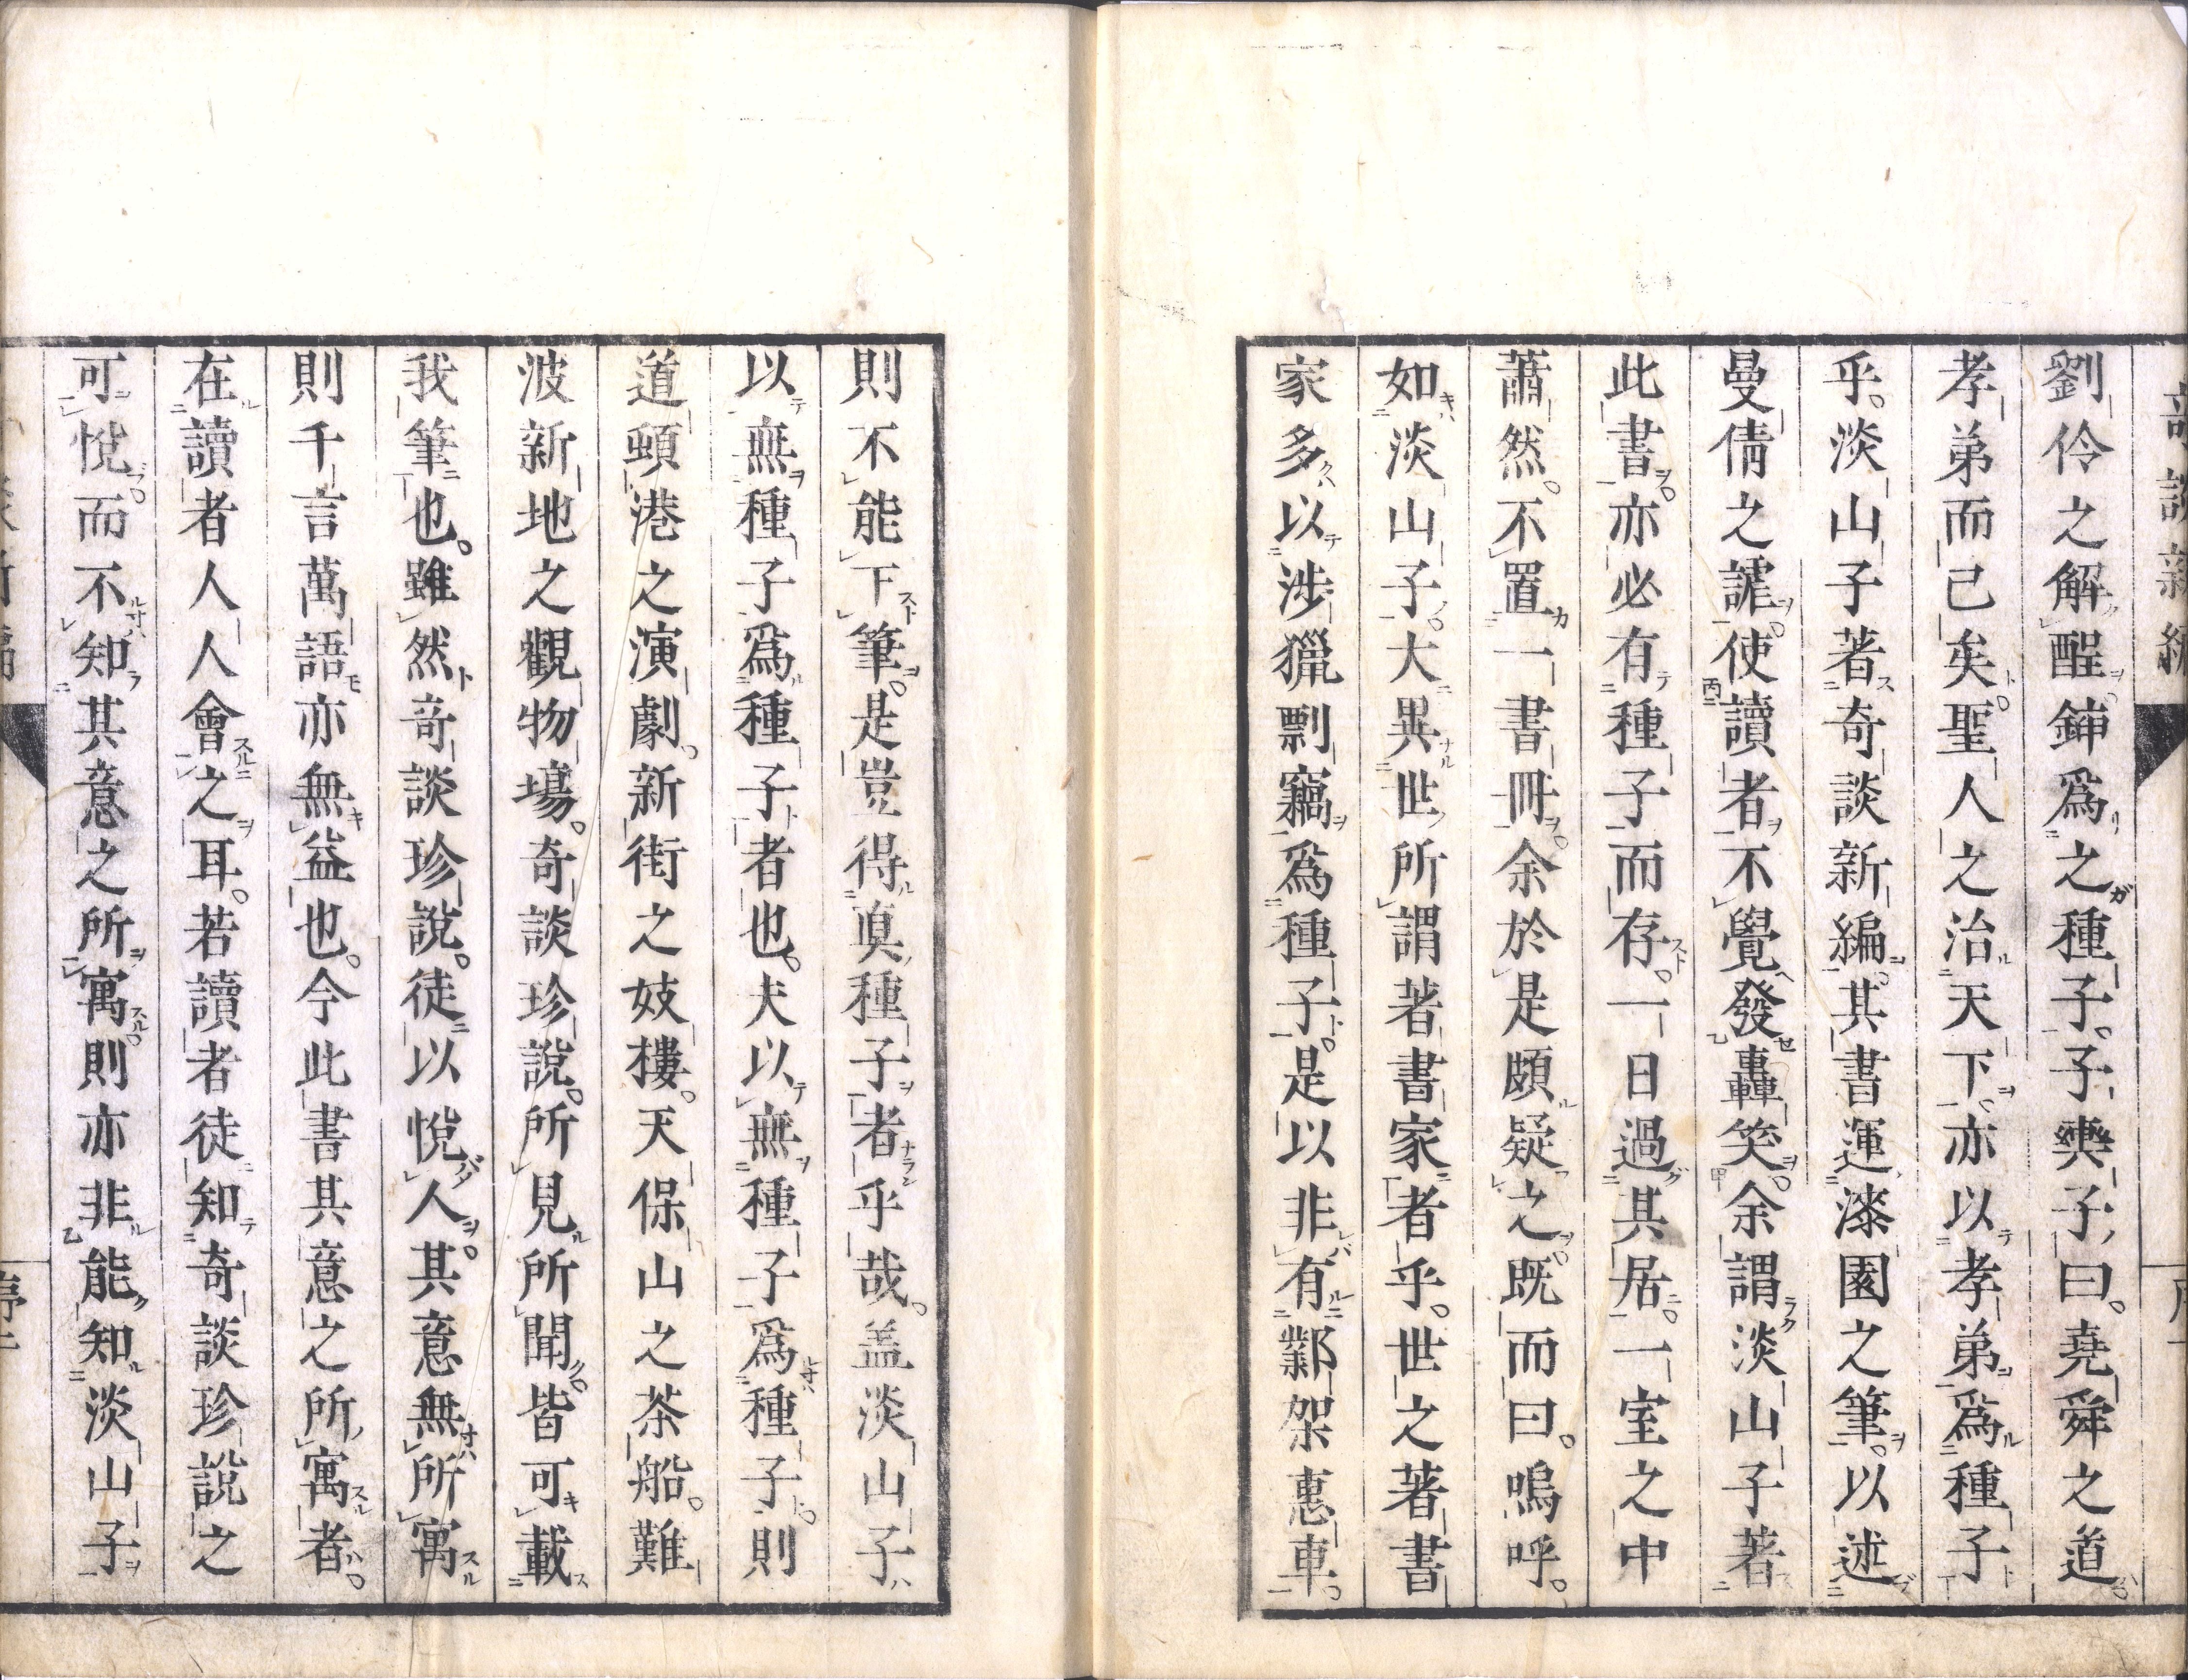 劉伶之解酲鍤爲之種子。子輿子曰。堯舜之道
孝弟而已矣。聖人之治天下。亦以孝弟爲種子
乎。淡山子著奇談新編。其書運漆園之筆。以述
曼倩之謔。使讀者不覺發轟笑。余謂淡山子著
此書。亦必有種子而存。一日過其居。一室之中
蕭然。不置一書冊。余於是頗疑之。既而曰。嗚呼。
如淡山子。大異世所謂著書家者乎。世之著書
家多以涉獵剽竊爲種子。是以非有鄴架惠車。
則不能下筆。是豈得眞種子者乎哉。盖淡山子
以無種子爲種子者也。夫以無種子爲種子。則
道頓港之演劇。新街之妓樓。天保山之茶船。難
波新地之觀物場。奇談珍說。所見所聞。皆可載
我筆也。雖然奇談珍說。徒以悅人。其意無所寓
則千言萬語亦無益也。今此書其意之所寓者。
在讀者人人會之耳。若讀者徒知奇談珍說之
可悅。而不知其意之所寓。則亦非能知淡山子